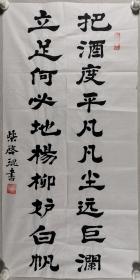 把酒度平凡凡尘远巨澜
立足何必地楊柳妒白帆
柴啓琨書